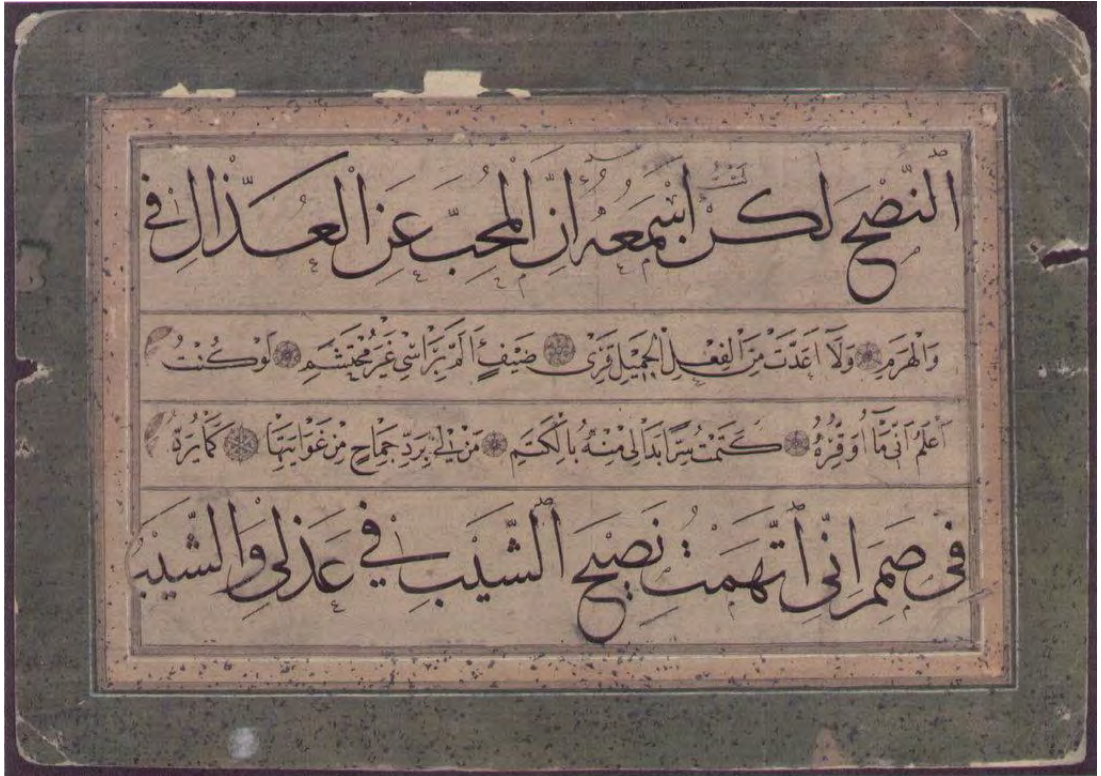 النُّصْحَ لٰكِنْ لَسْتُ اَسْمَعُهُ اِنَّ الْمُحِبَّ عَنِ الْعُذَّالِ فِي
وَالْهَرَمِ وَلَا اَعَدَّتْ مِنَ الْفِعْلِ الْجَمِيلِ قِرٰى ضَيْفٍ اَلَمَّ بِرَاْسِي غَيْرَ مُحْتَشِمِ لَوْ كُنْتُ
اَعْلَمُ اَنِّي مَا اُوَقِّرُهُ كَتَمْتُ سِرًّا بَدَا لِي مِنْهُ بِالْكَتَمِ مَنْ لِي بِرَدِّ جِمَاحٍ مِنْ غَوَايَتِهَا كَمَا يُرَدُّ
فِي صَمَمِ اِنِّي اتَّهَمْتُ نَصِيحَ الشَّيْبِ فِي عَذَلِي وَالشَّيْبُ